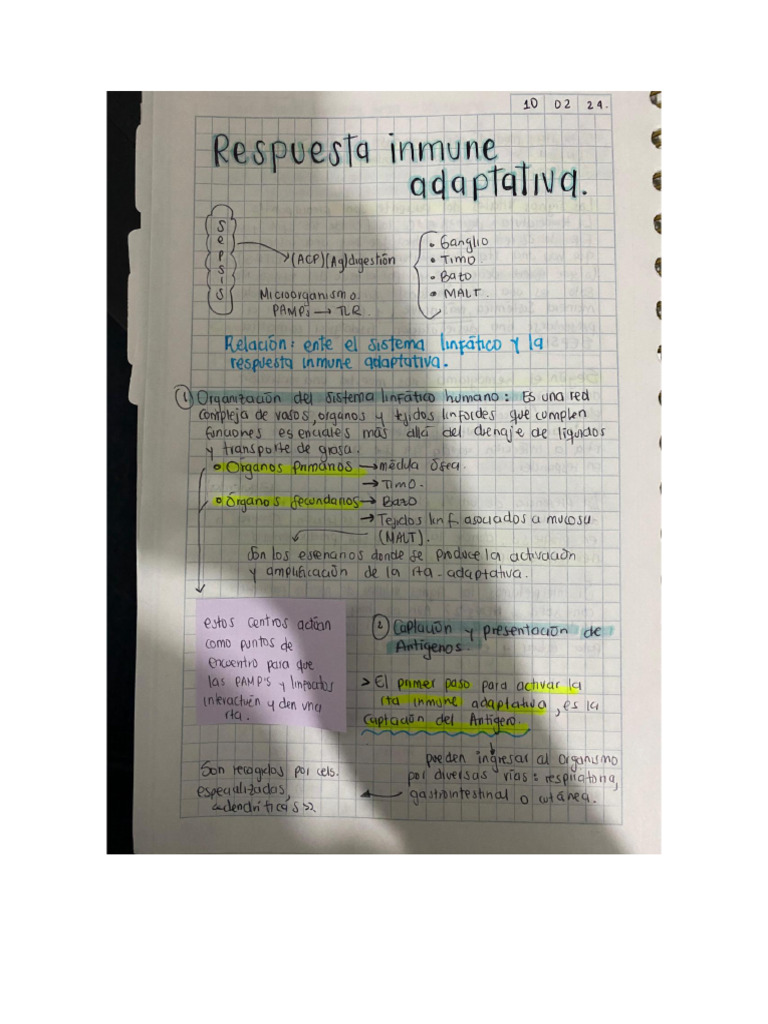 10 02 24.
Respuesta inmune
adaptativa.
Sepsis
(ACP)(Ag)digestión
Microorganismo.
PAMP's → TLR
• Ganglio
• Timo
• Bazo
• MALT.
Relación: ente el sistema linfático y la
respuesta inmune adaptativa.
1 Organización del sistema linfático humano: Es una red
compleja de vasos, organos y tejidos linfoides que cumplen
funciones esenciales más allá del drenaje de liquidos
y transporte de grasa.
• Órganos Primarios → médula ósea.
→ Timo.
• Órganos secundarios → Bazo
→ Tejidos linf. asociados a mucosu
(MALT).
Son los escenarios donde se produce la activación
y amplificación de la rta. adaptativa.
estos centros actúan
como puntos de
encuentro para que
las PAMP'S y linfocitos
interactúen y den una
rta.
2 Captación y presentación de
Antígenos.
> El primer paso para activar la
rta inmune adaptativa, es la
Captación del Antígeno.
pueden ingresar al organismo
por diversas vías: respiratoria,
gastrointestinal o cutánea.
Son recogidos por cels.
especializadas,
<<dendríticas>>.